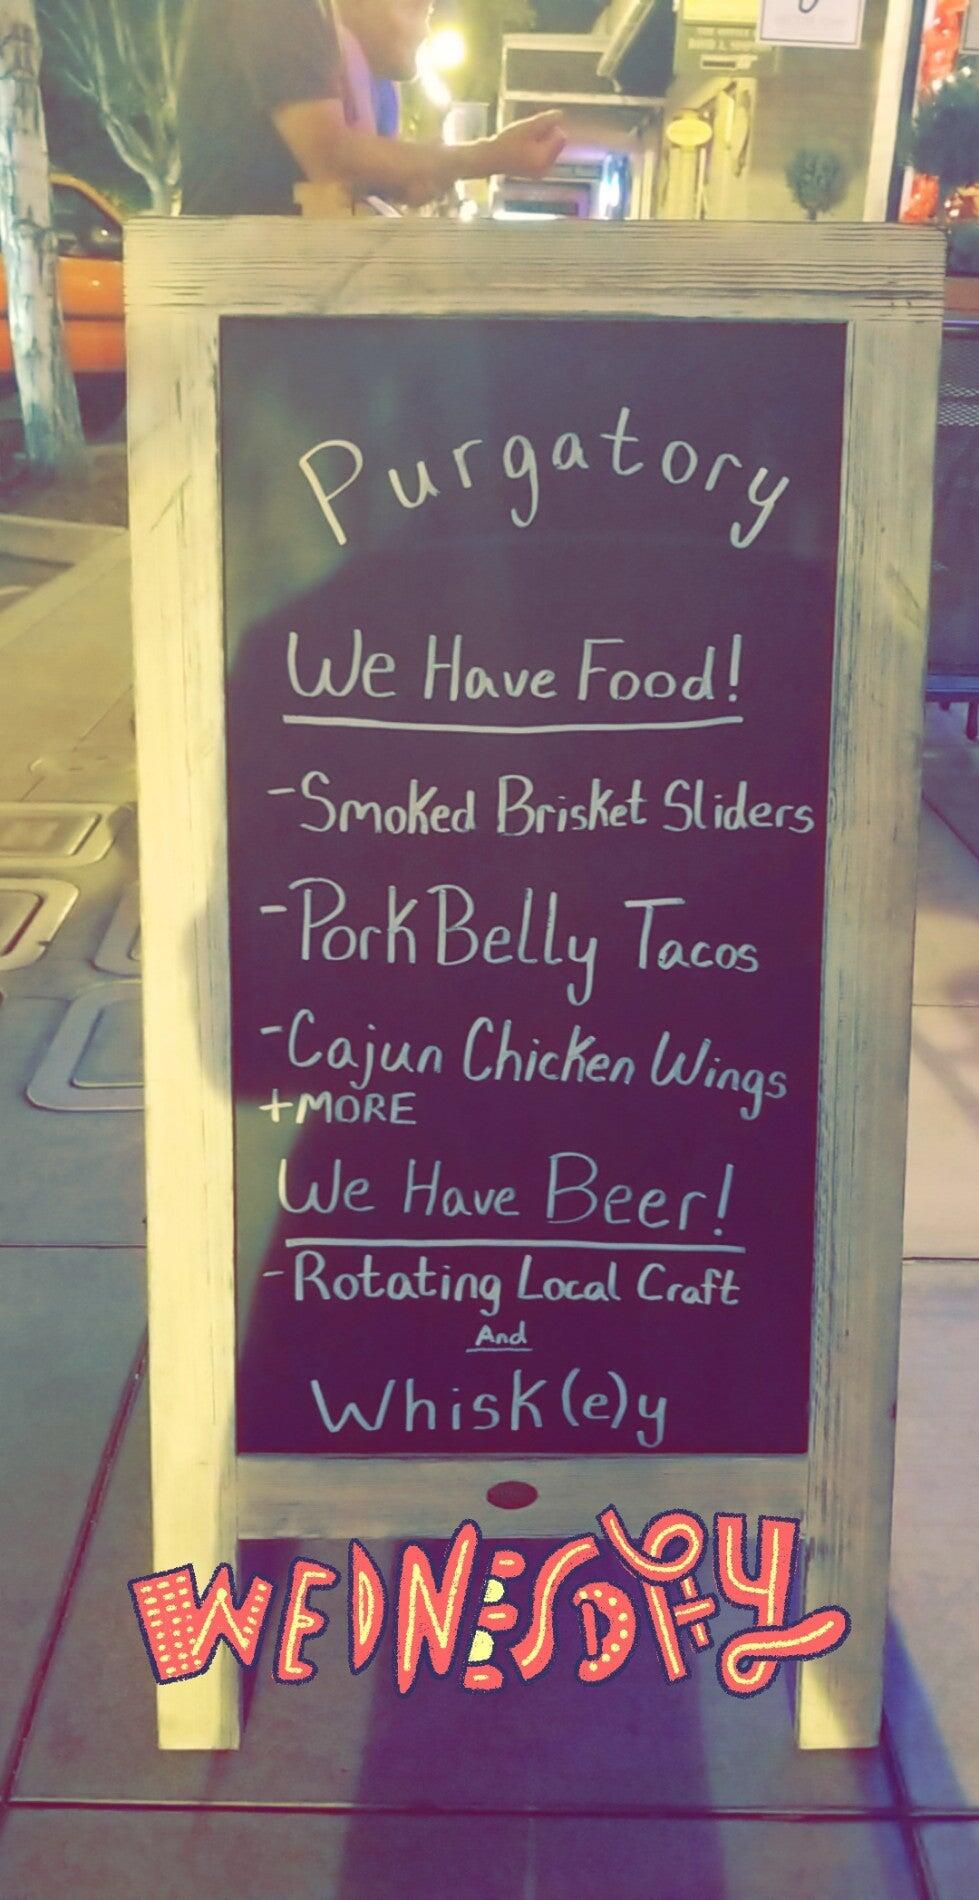 Purgatory
We Have Food!
-Smoked Brisket Sliders
-Pork Belly Tacos
-Cajun Chicken Wings
+MORE
We Have Beer!
-Rotating Local Craft
And
Whisk(e)y
WEDNESDAY